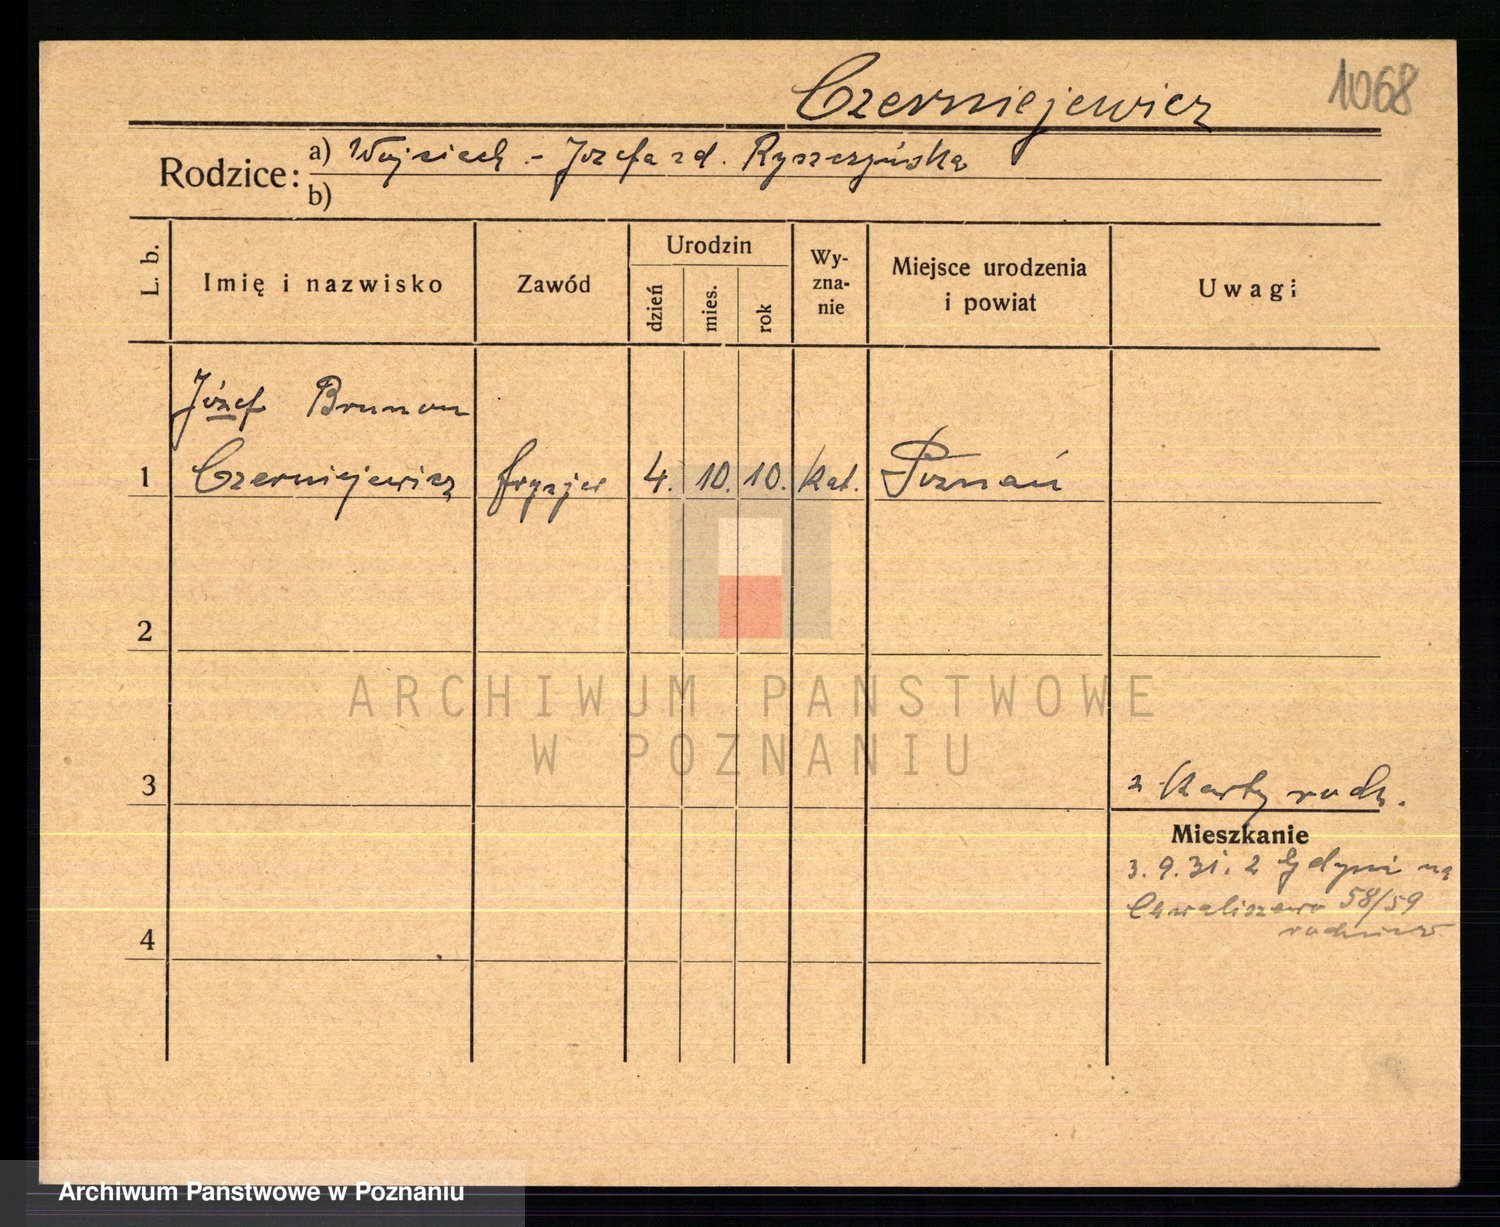 Czerniejewicz
1068
Rodzice:
a) Wojciech - Józefa zd. Ryszczyńska
b)
L. b.
Imię i nazwisko
Zawód
Urodzin
dzień
mies.
rok
Wy-
zna-
nie
Miejsce urodzenia
i powiat
Uwagi
Józef Brunon
1 Czerniejewicz fryzjer 4. 10. 10. kat. Poznań
2
ARCHIWUM PAŃSTWOWE
W POZNANIU
3
z karty rodz.
Mieszkanie
3. 9. 31. z Gdyni na
Chwaliszewo 58/59
4
Archiwum Państwowe w Poznaniu